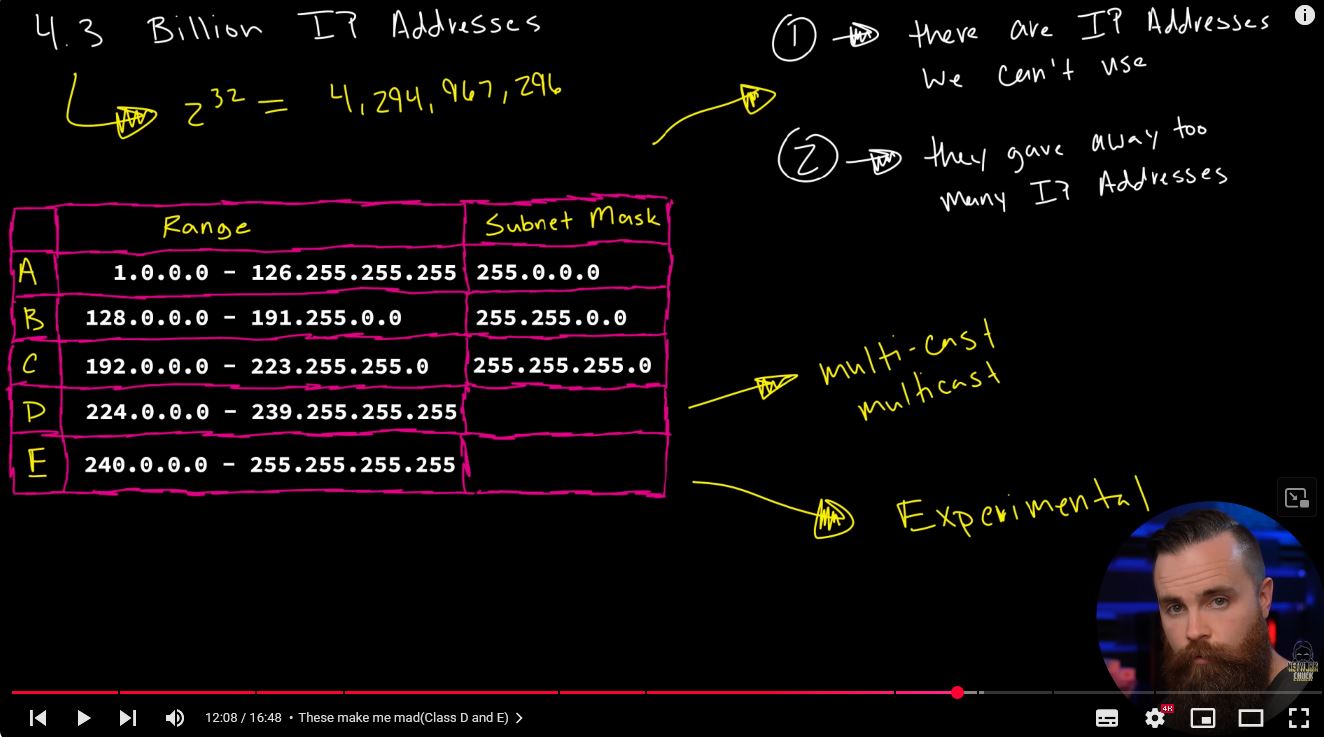 4.3 Billion IP Addresses
2^32 = 4,294,967,296
1 there are IP Addresses
we can't use
2 they gave away too
many IP Addresses
Range Subnet Mask
A 1.0.0.0 - 126.255.255.255 255.0.0.0
B 128.0.0.0 - 191.255.0.0 255.255.0.0
C 192.0.0.0 - 223.255.255.0 255.255.255.0
D 224.0.0.0 - 239.255.255.255
E 240.0.0.0 - 255.255.255.255
multi-cast
multicast
Experimental
NETWORK
CHUCK
12:08 / 16:48 • These make me mad(Class D and E)
4K